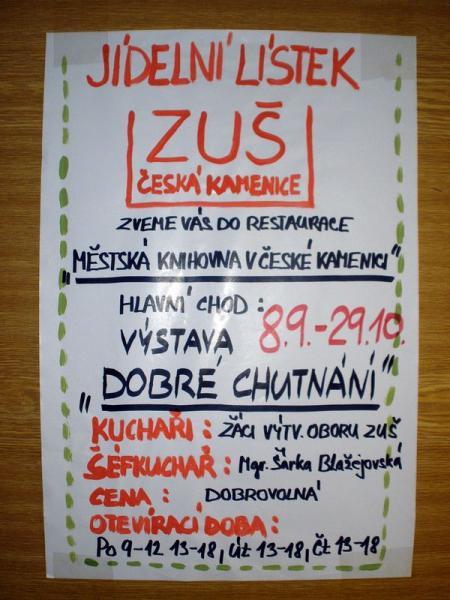 JÍDELNÍ LÍSTEK
ZUŠ
ČESKÁ KAMENICE
ZVEME VÁS DO RESTAURACE
„MĚSTSKÁ KNIHOVNA V ČESKÉ KAMENICI"
HLAVNÍ CHOD:
VÝSTAVA 8.9.-29.10.
„DOBRÉ CHUTNÁNÍ"
KUCHAŘI: ŽÁCI VÝTV. OBORU ZUŠ
ŠÉFKUCHAŘ: Mgr. Šárka Blažejovská
CENA: DOBROVOLNÁ
OTEVÍRACÍ DOBA:
Po 9-12 13-18, Út 13-18, Čt 13-18